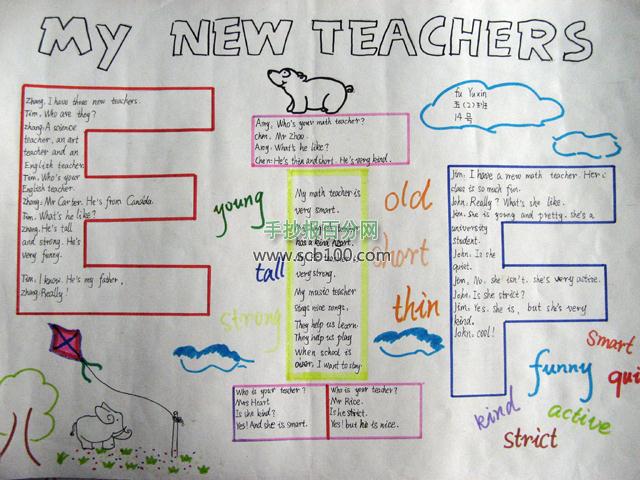 MY NEW TEACHERS
Zhang. I have three new teachers.
Tim. Who are they?
zhang. A science
teacher, an art
teacher and an
English teacher.
Tim. Who's your
English teacher.
Zhang: Mr Carter. He's from Canada.
Tim. What's he like?
Zhang: He's tall
and strong. He's
very funny.
Tim. I know. He's my father.
Zhang: Really!
Amy, Who's your math teacher?
Chen. Mr Zhao.
Amy. What's he like?
Chen: He's thin and short. He's very kind.
fu Yuxin
五(2)班
14号
young
tall
strong
My math teacher is
very smart.
has a kind heart.
very strong.
My music teacher
sings nice songs.
They help us learn.
They help us play
When school is
over. I want to stay
手抄报百分网
www.scb100.com
old
short
thin
Jim: I have a new math teacher. Her
class is so much fun.
John. Really? What's she like.
Jim. she is young and pretty. she's a
university
student.
John. Is she
quiet.
Jim, No, she isn't. she's very active.
John: Is she strict?
Jim: Yes. she is, but she's very
kind.
John: cool!
Who is your teacher?
Mrs Heart
Is she kind?
Yes! And she is smart.
Who is your teacher?
Mr Rice.
Is he strict.
Yes! but he is nice.
smart
funny
qui
kind
active
strict